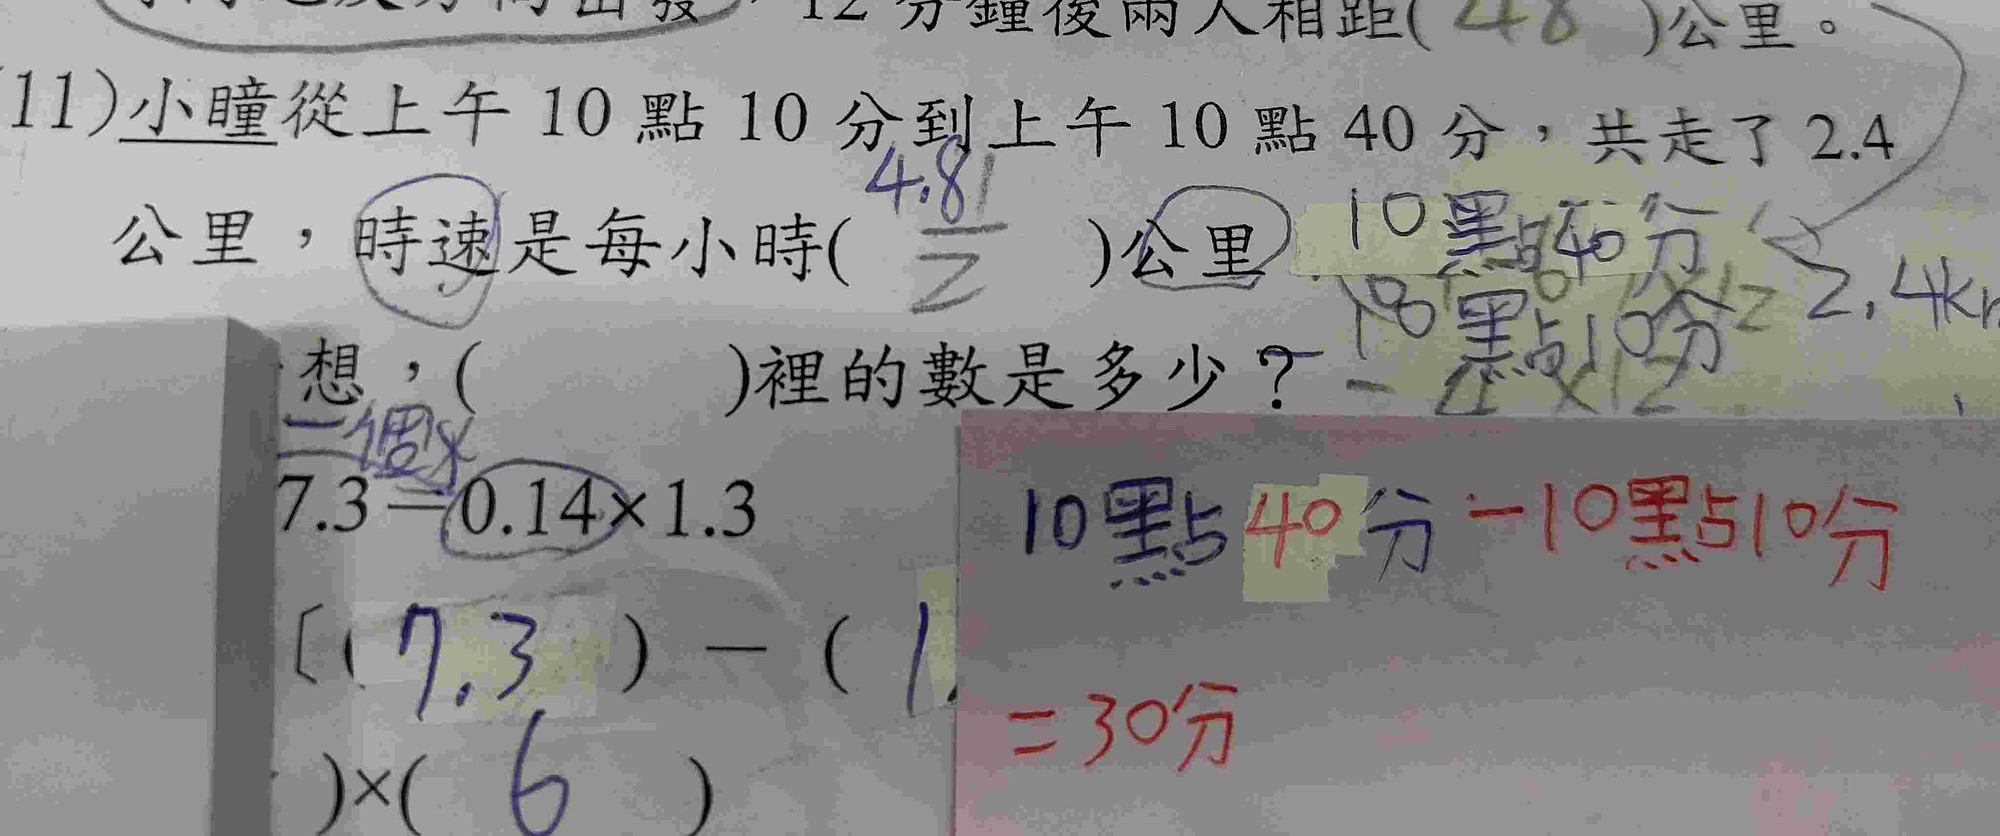 12分鐘後兩人相距( 48 )公里。
11)小瞳從上午10點10分到上午10點40分，共走了2.4
4.8
公里，時速是每小時( )公里
10點40分
10點10分
2.4k
想，( )裡的數是多少？
一個
7.3=0.14×1.3
〔( 7.3 )－( 1.
)×( 6 )
10點40分－10點10分
=30分